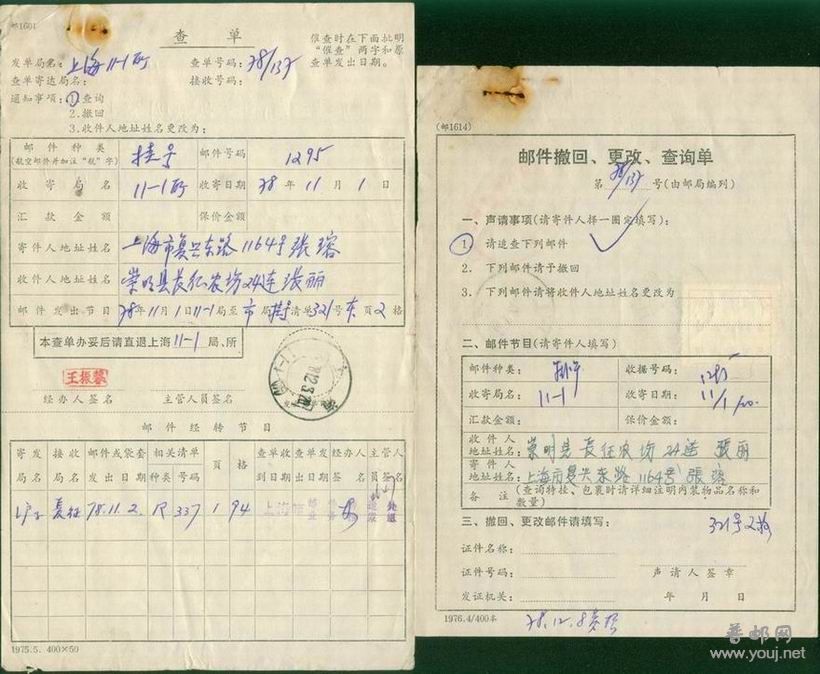 邮1601
查 单
催查时在下面批明
“催查”两字和原
查单发出日期。
发单局名：上海11-1所 查单号码：78/137
查单寄达局名： 接收号码：
通知事项：1.查询
2.撤回
3.收件人地址姓名更改为：
邮件种类 挂号 邮件号码 1295
(航空邮件并加注“航”字)
收寄局名 11-1所 收寄日期 78年11月1日
汇款金额 保价金额
寄件人地址姓名 上海市复兴东路1164号張瑢
收件人地址姓名 崇明县长征农场24连張丽
邮件发出节目 78年11月1日11-1局至市局挂号清单321号 页2格
本查单办妥后请直退上海11-1局、所
王振馨
经办人签名 主管人员签名
邮件经转节目
寄发局名 接收局名 邮件或袋套发出日期 相关清单种类 号码 页 格 查单收到日期 查单发出日期 经办人签名 主管人员签名
长征 78.11.2. R 337 1 94
1975.5. 400×50
(邮1614)
邮件撤回、更改、查询单
第78/137号(由邮局编列)
一、声请事项(请寄件人择一圈定填写)：
1. 请追查下列邮件
2. 下列邮件请予撤回
3. 下列邮件请将收件人地址姓名更改为
二、邮件节目(请寄件人填写)
邮件种类： 挂号 收据号码： 1295
收寄局名： 11-1 收寄日期： 11/1
汇款金额： 保价金额：
收件人地址姓名： 崇明县长征农场24连 張丽
寄件人地址姓名： 上海市复兴东路1164号 張瑢
备注 (查询特挂、包裹时请详细注明内装物品名称和数量)
三、撤回、更改邮件请填写： 321号2格
证件名称：
证件号码： 声请人签章
发证机关： 年 月 日
1976.4/400本 78.12.8
普邮网
www.youj.net